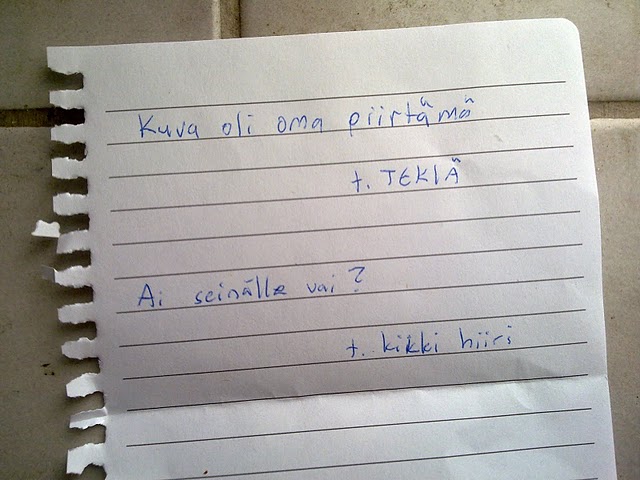 Kuva oli oma piirtämä
t. TEKlÄ
Ai seinälle vai?
t. kikki hiiri